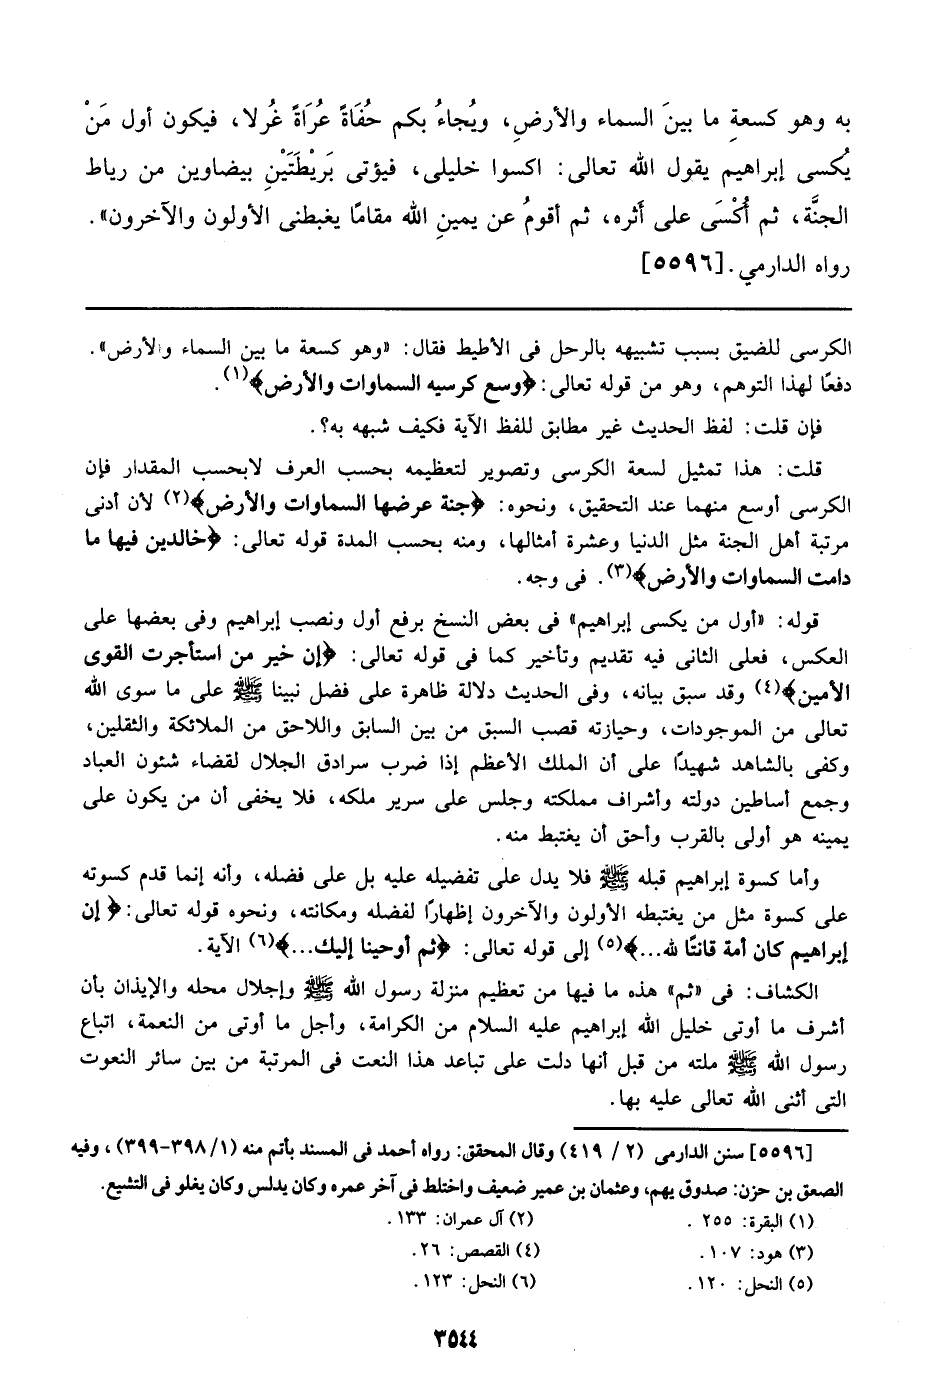 به وهو كسعةِ ما بينَ السماء والأرضِ، ويُجاءُ بكم حُفَاةً عُرَاةً غُرلا، فيكون أول مَنْ
يُكسى إبراهيم يقول الله تعالى: اكسوا خليلى، فيؤتى بَريْطَتَيْنِ بيضاوين من رياط
الجنَّة، ثم أُكْسَى على أثره، ثم أقومُ عن يمينِ الله مقامًا يغبطنى الأولون والآخرون».
رواه الدارمي. [٥٥٩٦]
الكرسى للضيق بسبب تشبيهه بالرحل فى الأطيط فقال: «وهو كسعة ما بين السماء والأرض».
دفعًا لهذا التوهم، وهو من قوله تعالى: ﴿وسع كرسيه السماوات والأرض﴾(١).
فإن قلت: لفظ الحديث غير مطابق للفظ الآية فكيف شبهه به؟.
قلت: هذا تمثيل لسعة الكرسى وتصوير لتعظيمه بحسب العرف لابحسب المقدار فإن
الكرسى أوسع منهما عند التحقيق، ونحوه: ﴿جنة عرضها السماوات والأرض﴾(٢) لأن أدنى
مرتبة أهل الجنة مثل الدنيا وعشرة أمثالها، ومنه بحسب المدة قوله تعالى: ﴿خالدين فيها ما
دامت السماوات والأرض﴾(٣). فى وجه.
قوله: «أول من يكسى إبراهيم» فى بعض النسخ برفع أول ونصب إبراهيم وفى بعضها على
العكس، فعلى الثانى فيه تقديم وتأخير كما فى قوله تعالى: ﴿إن خير من استأجرت القوى
الأمين﴾(٤) وقد سبق بيانه، وفى الحديث دلالة ظاهرة على فضل نبينا ﷺ على ما سوى الله
تعالى من الموجودات، وحيازته قصب السبق من بين السابق واللاحق من الملائكة والثقلين،
وكفى بالشاهد شهيدًا على أن الملك الأعظم إذا ضرب سرادق الجلال لقضاء شئون العباد
وجمع أساطين دولته وأشراف مملكته وجلس على سرير ملكه، فلا يخفى أن من يكون على
يمينه هو أولى بالقرب وأحق أن يغتبط منه.
وأما كسوة إبراهيم قبله ﷺ فلا يدل على تفضيله عليه بل على فضله، وأنه إنما قدم كسوته
على كسوة مثل من يغتبطه الأولون والآخرون إظهارًا لفضله ومكانته، ونحوه قوله تعالى: ﴿إن
إبراهيم كان أمة قانتًا لله...﴾(٥) إلى قوله تعالى: ﴿ثم أوحينا إليك...﴾(٦) الآية.
الكشاف: فى «ثم» هذه ما فيها من تعظيم منزلة رسول الله ﷺ وإجلال محله والإيذان بأن
أشرف ما أوتى خليل الله إبراهيم عليه السلام من الكرامة، وأجل ما أوتى من النعمة، اتباع
رسول الله ﷺ ملته من قبل أنها دلت على تباعد هذا النعت فى المرتبة من بين سائر النعوت
التى أثنى الله تعالى عليه بها.
[٥٥٩٦] سنن الدارمى (٢ / ٤١٩) وقال المحقق: رواه أحمد فى المسند بأتم منه (١/ ٣٩٨-٣٩٩)، وفيه
الصعق بن حزن: صدوق يهم، وعثمان بن عمير ضعيف واختلط فى آخر عمره وكان يدلس وكان يغلو فى التشيع.
(١) البقرة: ٢٥٥ . (٢) آل عمران: ١٣٣.
(٣) هود: ١٠٧. (٤) القصص: ٢٦.
(٥) النحل: ١٢٠. (٦) النحل: ١٢٣.
٣٥٤٤